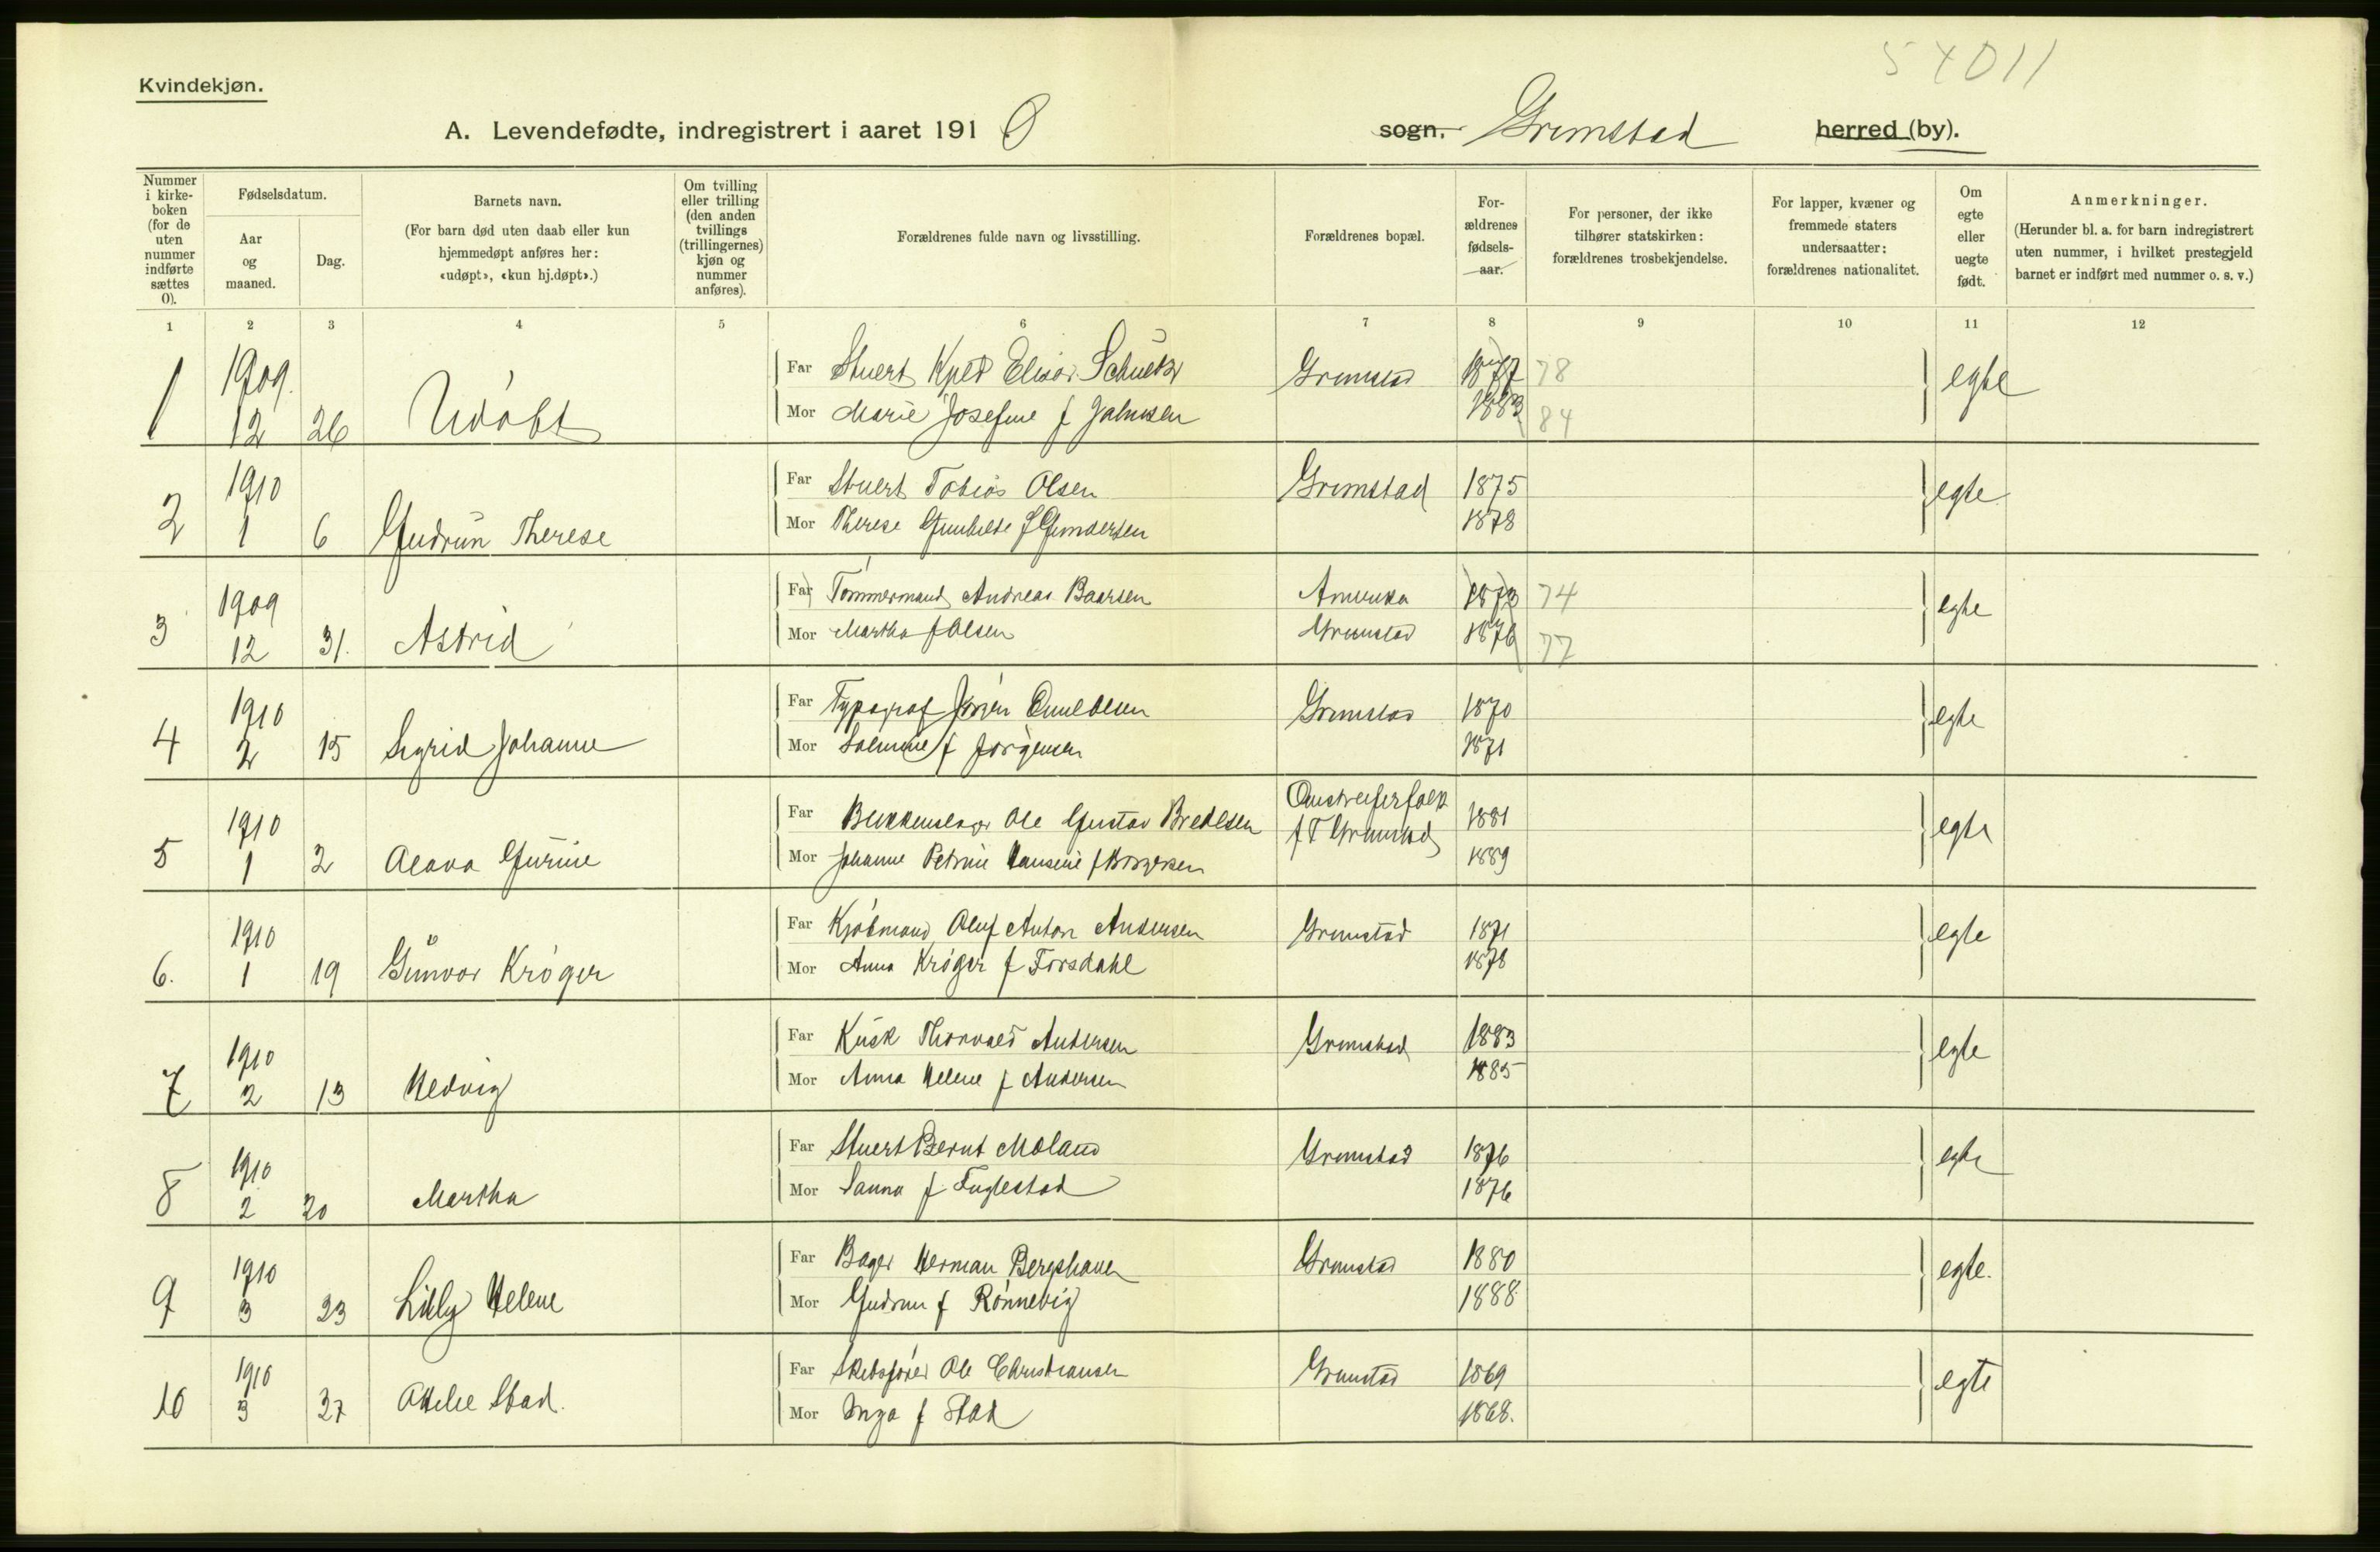 54011
Kvindekjøn.
A. Levendefødte, indregistrert i aaret 1910 sogn. Grimstad herred (by).
Nummer i kirkeboken (for de uten nummer indførte sættes 0).
Fødselsdatum.
Aar og maaned.
Dag.
Barnets navn.
(For barn død uten daab eller kun hjemmedøpt anføres her: «udøpt», «kun hj.døpt».)
Om tvilling eller trilling (den anden tvillings (trillingernes) kjøn og nummer anføres).
Forældrenes fulde navn og livsstilling.
Forældrenes bopæl.
Forældrenes fødselsaar.
For personer, der ikke tilhører statskirken: forældrenes trosbekjendelse.
For lapper, kvæner og fremmede staters undersaatter: forældrenes nationalitet.
Om egte eller uegte født.
Anmerkninger.
(Herunder bl. a. for barn indregistrert uten nummer, i hvilket prestegjeld barnet er indført med nummer o. s. v.)
1 2 3 4 5 6 7 8 9 10 11 12
1 1909. 12 26 Udøbt
Far Stuert Elias Schultz Grimstad 1877 78 egte
Mor Marie Josefine f 1883 84
2 1910 1 6 Gudrun Therese
Far Stuert Tobias Olsen Grimstad 1875 egte
Mor Therese Gunhilde f Gundersen 1878
3 1909 12 31. Astrid
Far Tømmermand Andreas Baarsen Amerika 1873 74 egte
Mor Martha f Olsen Grimstad 1876 77
4 1910 2 15 Sigrid Johanne
Far Typograf Jørgen Grimstad 1870 egte
Mor f Jørgensen 1871
5 1910 1 2 Gurine
Far Ole Gustav Bredesen Omstreiferfolk 1881 egte
f T Grimstad
Mor Johanne Petrine Hansine f 1889
6. 1910 1 19 Gunvor Krøger
Far Kjøbmand Oluf Anton Andersen Grimstad 1871 egte
Mor Anna Krøger f Forsdahl 1878
7 1910 2 13 Hedvig
Far Kusk Thorvald Andersen Grimstad 1883 egte
Mor Anna Helene f Andersen 1885
8 1910 2 20 Martha
Far Stuert Bernt Moland Grimstad 1876 egte
Mor Sanna f Fuglestad 1876
9 1910 3 23 Lilly Helene
Far Bager Herman Bergshaven Grimstad 1880 egte.
Mor Gudrun f Rønnevig 1888
10 1910 3 27 Stad.
Far Skibsfører Ole Christiansen Grimstad 1869 egte
Mor Inga f Stad 1868.